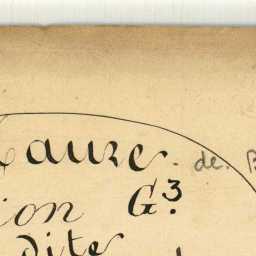 auze. de. B
ion G.³
dite